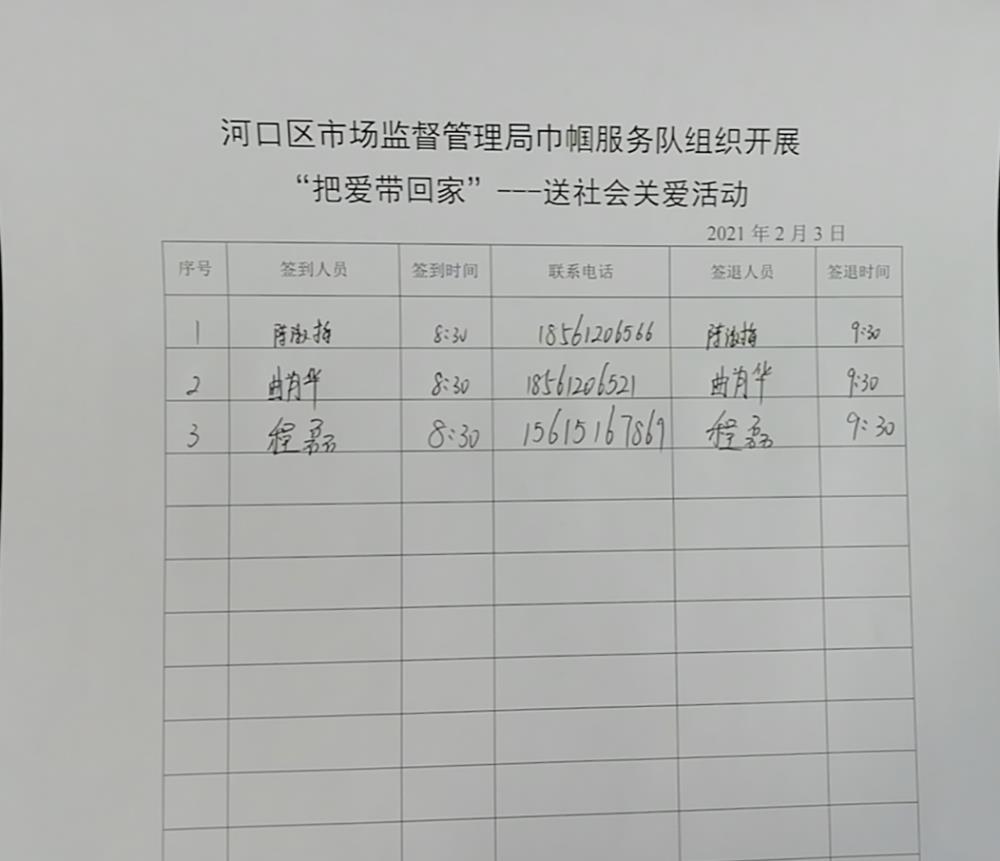 河口区市场监督管理局巾帼服务队组织开展
“把爱带回家”---送社会关爱活动
2021 年 2 月 3 日
序号 签到人员 签到时间 联系电话 签退人员 签退时间
1 陈淑梅 8:30 18561206566 陈淑梅 9:30
2 曲肖华 8:30 18561206521 曲肖华 9:30
3 程磊 8:30 15615167869 程磊 9:30